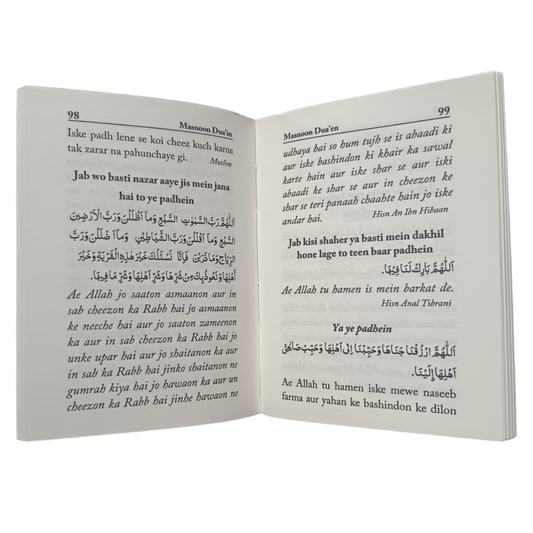 98
Masnoon Dua'in
Iske padh lene se koi cheez kuch karne
tak zarar na pahunchaye gi.
Muslim
Jab wo basti nazar aaye jis mein jana
hai to ye padhein
اَللّٰهُمَّ رَبَّ السَّمٰوٰتِ السَّبْعِ وَمَآ اَظْلَلْنَ وَرَبَّ الْاَرْضِيْنَ
السَّبْعِ وَمَآ اَقْلَلْنَ وَرَبَّ الشَّيَاطِيْنِ وَمَآ اَضْلَلْنَ وَرَبَّ
الرِّيَاحِ وَمَا ذَرَيْنَ فَاِنَّا نَسْئَلُكَ خَيْرَ هٰذِهِ الْقَرْيَةِ وَخَيْرَ
اَهْلِهَا وَنَعُوْذُ بِكَ مِنْ شَرِّهَا وَشَرِّ اَهْلِهَا وَشَرِّ مَا فِيْهَا.
Ae Allah jo saaton asmaanon aur in
sab cheezon ka Rabb hai jo asmaanon
ke neeche hai aur jo saaton zameenon
ka aur in sab cheezon ka Rabb hai jo
unke upar hai aur jo shaitanon ka aur
in sab ka Rabb hai jinko shaitanon ne
gumrah kiya hai jo hawaon ka aur un
cheezon ka Rabb hai jinhe hawaon ne
99
Masnoon Dua'en
udhaya hai so hum tujh se is abaadi ki
aur iske bashindon ki khair ka sawal
karte hain aur iske shar se aur iski
abaadi ke shar se aur in cheezon ke
shar se teri panaah chaahte hain jo iske
andar hai.
Hisn An Ibn Hibaan
Jab kisi shaher ya basti mein dakhil
hone lage to teen baar padhein
اَللّٰهُمَّ بَارِكْ لَنَا فِيْهَا.
Ae Allah tu hamen is mein barkat de.
Hisn Anal Tibrani
Ya ye padhein
اَللّٰهُمَّ ارْزُقْنَا جَنَاهَا وَحَبِّبْنَا اِلٰى اَهْلِهَا وَحَبِّبْ صَالِحِيْ
اَهْلِهَا اِلَيْنَا.
Ae Allah tu hamen iske mewe naseeb
farma aur yahan ke bashindon ke dilon